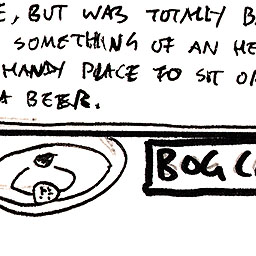 E, BUT WAS TOTALLY B
SOMETHING OF AN HE
HANDY PLACE TO SIT OR
A BEER.
BOG C